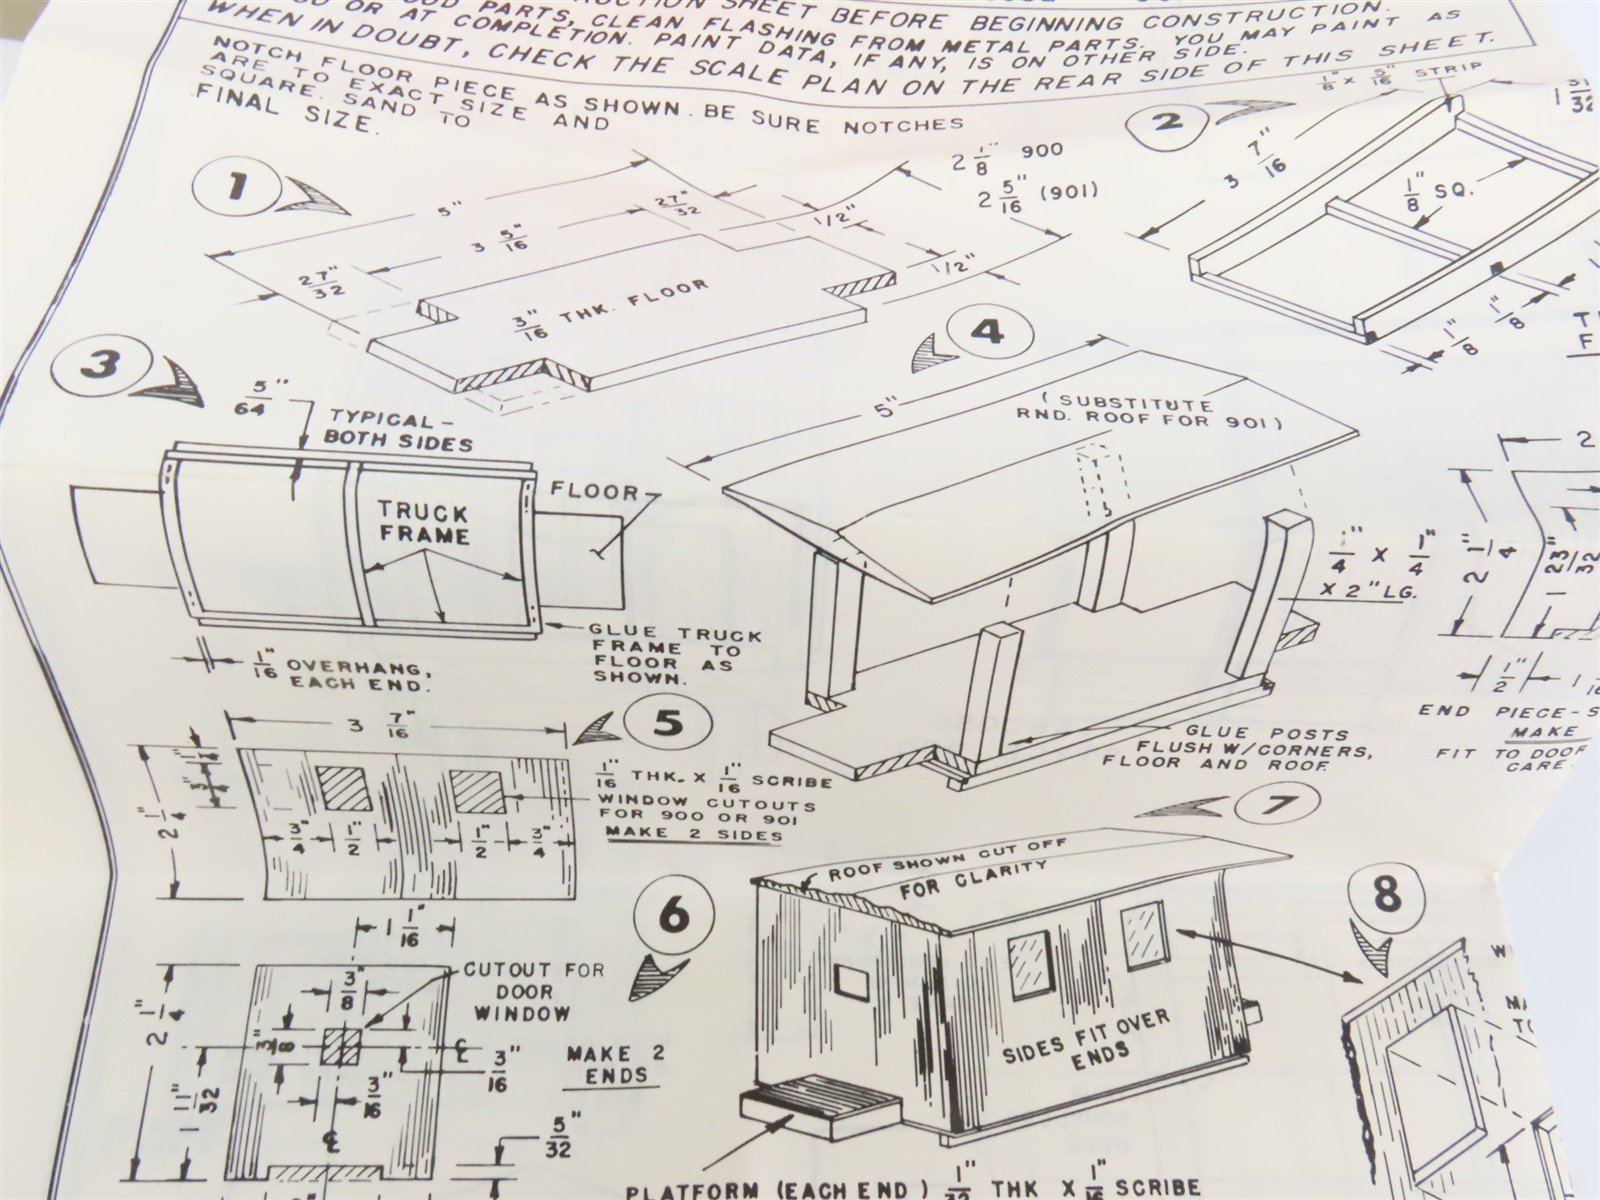 SHEET BEFORE BEGINNING CONSTRUCTION.
PARTS, CLEAN FLASHING FROM METAL PARTS. YOU MAY PAINT AS
OR AT COMPLETION. PAINT DATA, IF ANY, IS ON OTHER SIDE.
WHEN IN DOUBT, CHECK THE SCALE PLAN ON THE REAR SIDE OF THIS SHEET.
NOTCH FLOOR PIECE AS SHOWN. BE SURE NOTCHES
ARE TO EXACT SIZE AND
SQUARE. SAND TO
FINAL SIZE.
1
5"
3 5/16"
27/32"
27/32"
1/2"
1/2"
2 1/8" 900
2 5/16" (901)
3/16" THK. FLOOR
2
1/8" X 5/16" STRIP
3 7/16"
1/8" SQ.
1/8"
1/8"
1 31/32
3
5/64"
TYPICAL-
BOTH SIDES
TRUCK
FRAME
FLOOR
GLUE TRUCK
FRAME TO
FLOOR AS
SHOWN.
1/16" OVERHANG,
EACH END.
4
5"
(SUBSTITUTE
RND. ROOF FOR 901)
1/4" X 1/4"
X 2" LG.
GLUE POSTS
FLUSH W/CORNERS,
FLOOR AND ROOF.
2
2 1/4"
1 23/32"
1/2"
END PIECE-S
MAKE
FIT TO DOOR
CARE.
5
3 7/16"
2 1/4"
3/4"
1/2"
1/2"
3/4"
1/16" THK. X 1/16" SCRIBE
WINDOW CUTOUTS
FOR 900 OR 901
MAKE 2 SIDES
6
1 1/16"
3/8"
CUTOUT FOR
DOOR
WINDOW
2 1/4"
1 11/32"
3/8"
3/16"
3/16"
MAKE 2
ENDS
5/32"
7
ROOF SHOWN CUT OFF
FOR CLARITY
SIDES FIT OVER
ENDS
PLATFORM (EACH END) 1/32" THK X 1/16" SCRIBE
8